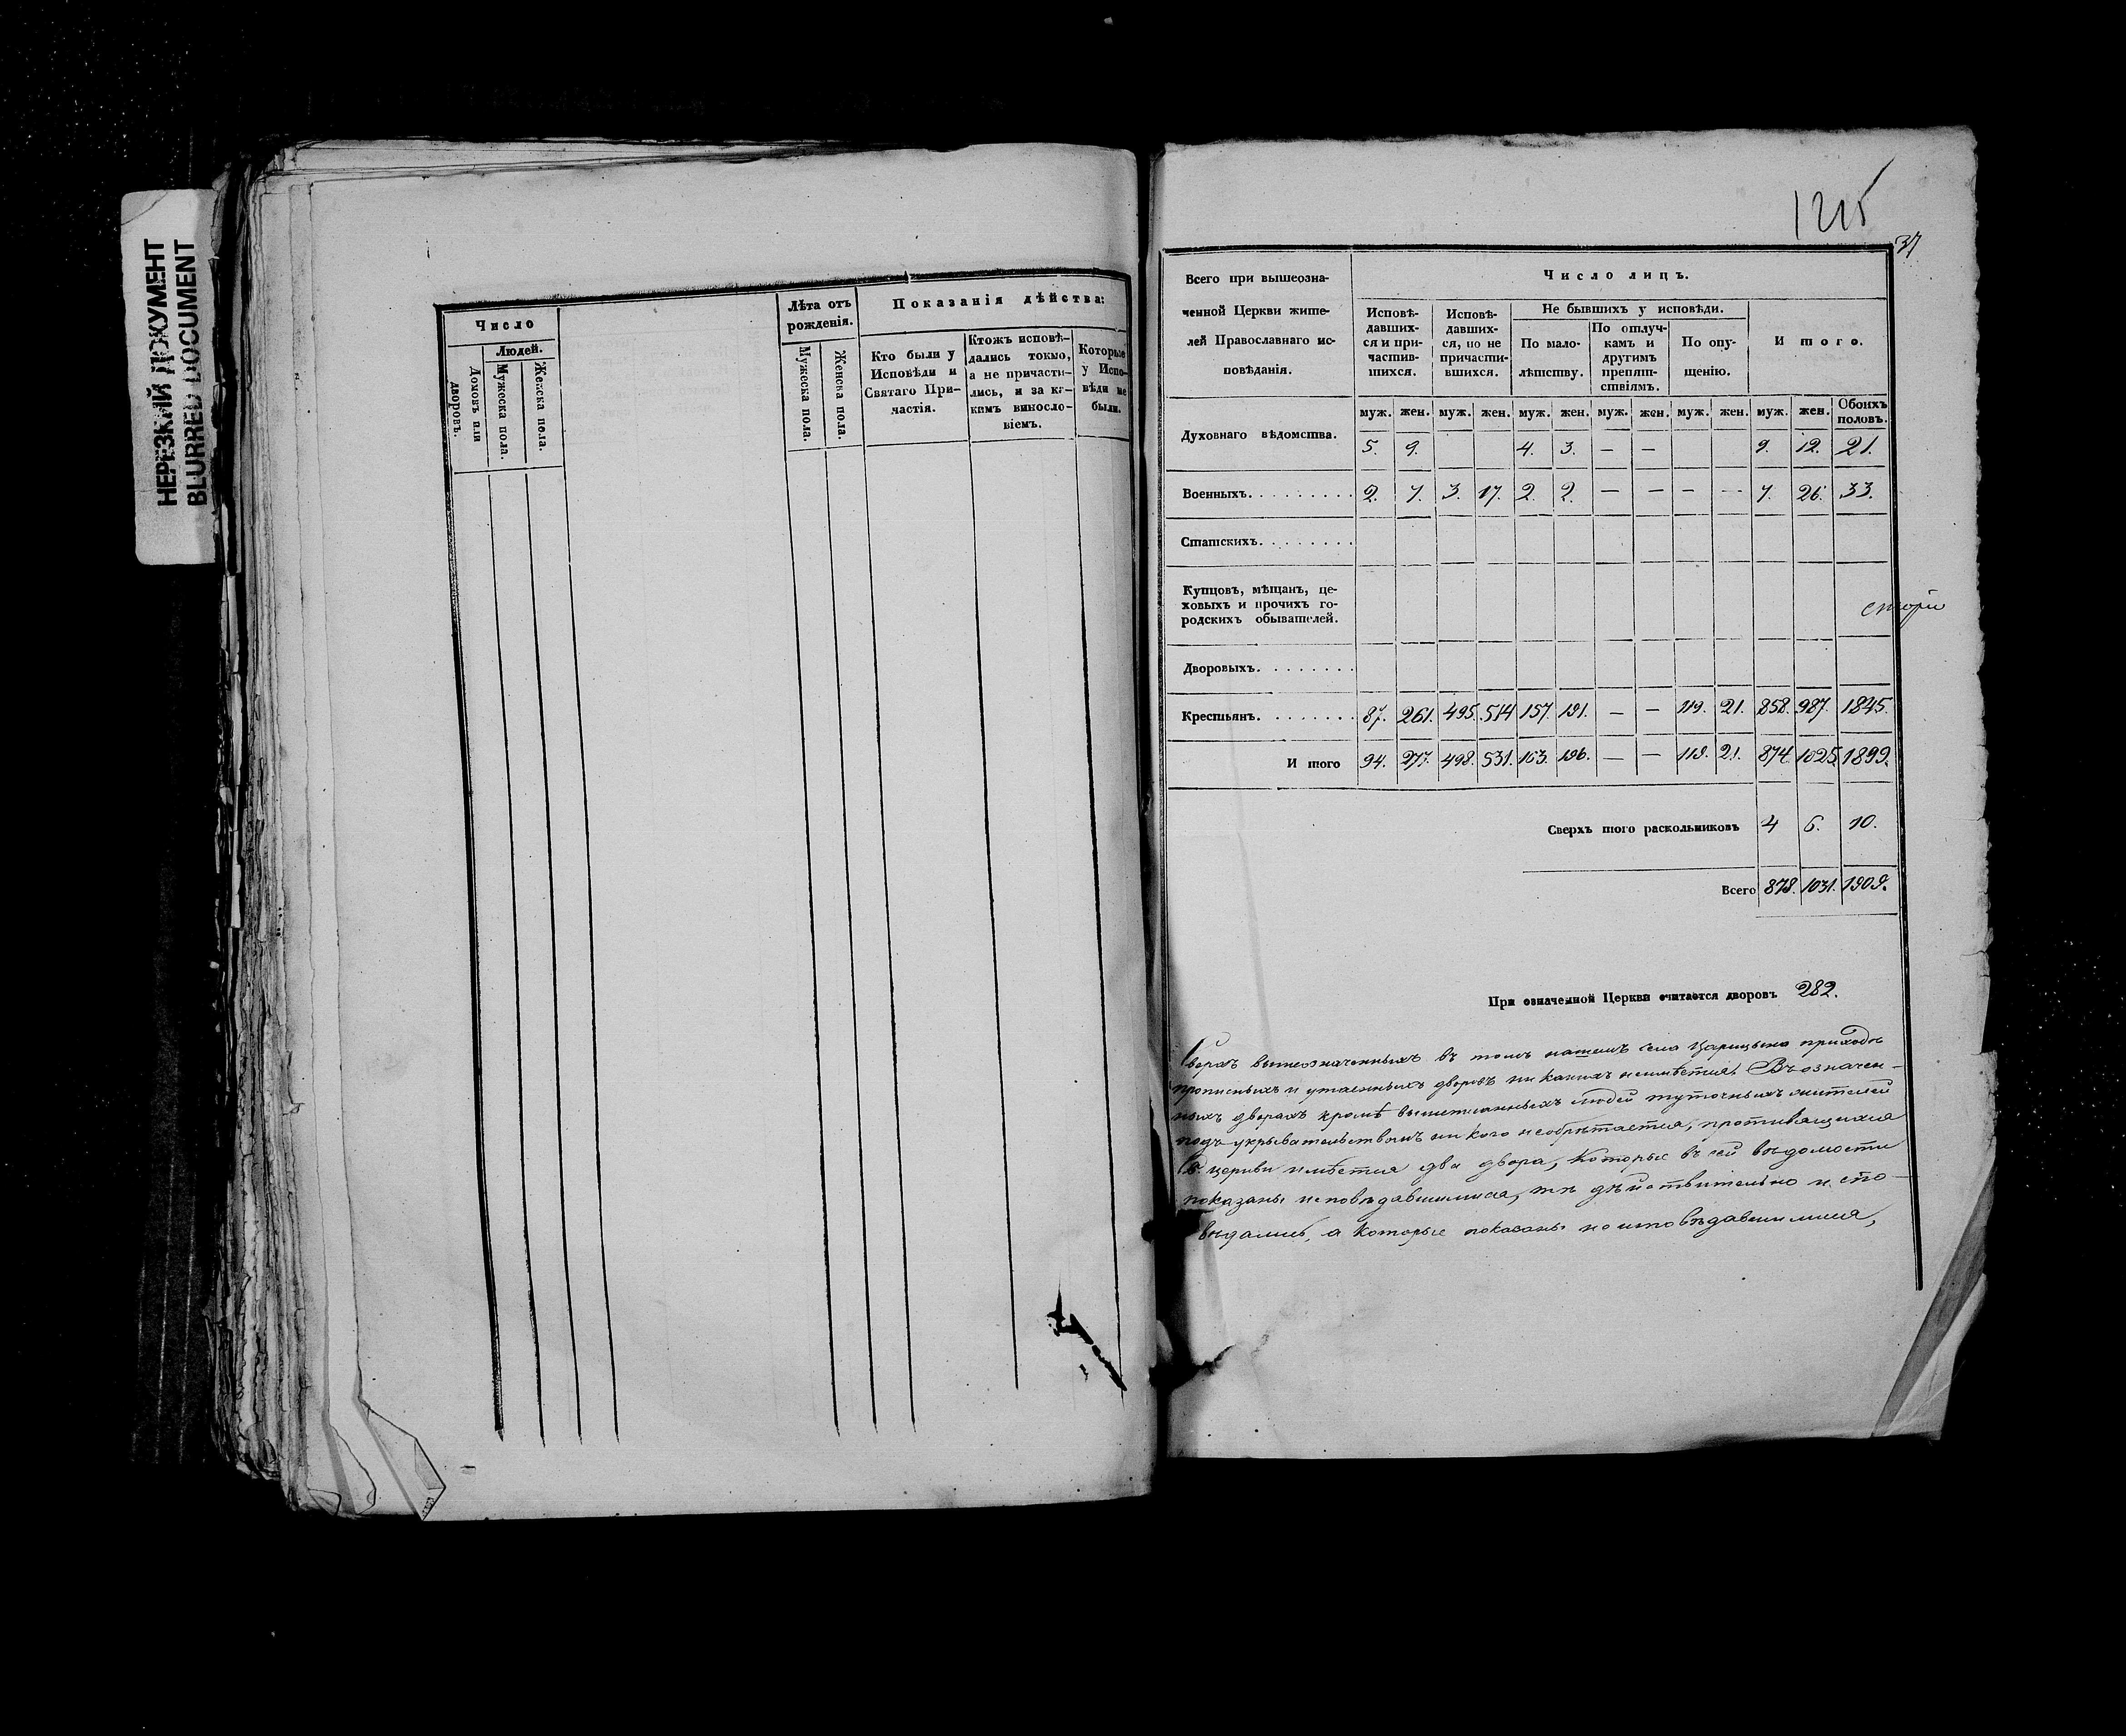 НЕРЕЗКИЙ ДОКУМЕНТ
BLURRED DOCUMENT
Число
Людей.
Домовъ или дворовъ.
Мужеска пола.
Женска пола.
Лѣта отъ рожденія.
Мужеска пола.
Женска пола.
Показанія дѣйства:
Кто были у
Исповѣди и
Святаго При-
частія.
Ктожъ исповѣ-
дались токмо,
а не причасти-
лись, и за ка-
кимъ виносло-
віемъ.
Которые
у Испо-
вѣди не
были.
37
Всего при вышеозна-
ченной Церкви жите-
лей Православнаго ис-
повѣданія.
Число лицъ.
Исповѣ-
давших-
ся и при-
частив-
шихся.
Исповѣ-
давших-
ся, но не
причасти-
вшихся.
Не бывшихъ у исповѣди.
По мало-
лѣтству.
По отлуч-
камъ и
другимъ
препят-
ствіямъ.
По опу-
щенію.
И того.
муж. жен. муж. жен. муж. жен. муж. жен. муж. жен. муж. жен. Обоихъ половъ.
Духовнаго вѣдомства. 5. 9. 4. 3. — — 9. 12. 21.
Военныхъ. . . . . . . . . 2. 7. 3. 17. 2. 2. — — — — 7. 26. 33.
Статскихъ. . . . . . . .
Купцовъ, мѣщанъ, це-
ховыхъ и прочихъ го-
родскихъ обывателей.
Дворовыхъ. . . . . . . .
Крестьянъ. . . . . . . . 87. 261. 495. 514 157. 191. — — 119. 21. 858. 987. 1845.
И того 94. 277. 498. 531. 163. 196. — — 119. 21. 874. 1025. 1899.
Сверхъ того раскольниковъ 4 6. 10.
Всего 878. 1031. 1909.
При означенной Церкви считается дворовъ 282.
Сверхъ вышеозначенныхъ въ томъ нашемъ села Царицына приходѣ
прописныхъ и утаенныхъ дворовъ ни какихъ неимѣется. Въ означен-
ныхъ дворахъ кромѣ вышеписанныхъ людей туточныхъ жителей
подъ укрывательствомъ ни кого необрѣтается, противящихся
церкви имѣется два двора, которые въ сей вѣдомости
показаны исповѣдавшимися, тѣ дѣйствительно испо-
вѣдались, а которые показаны неисповѣдавшимися,